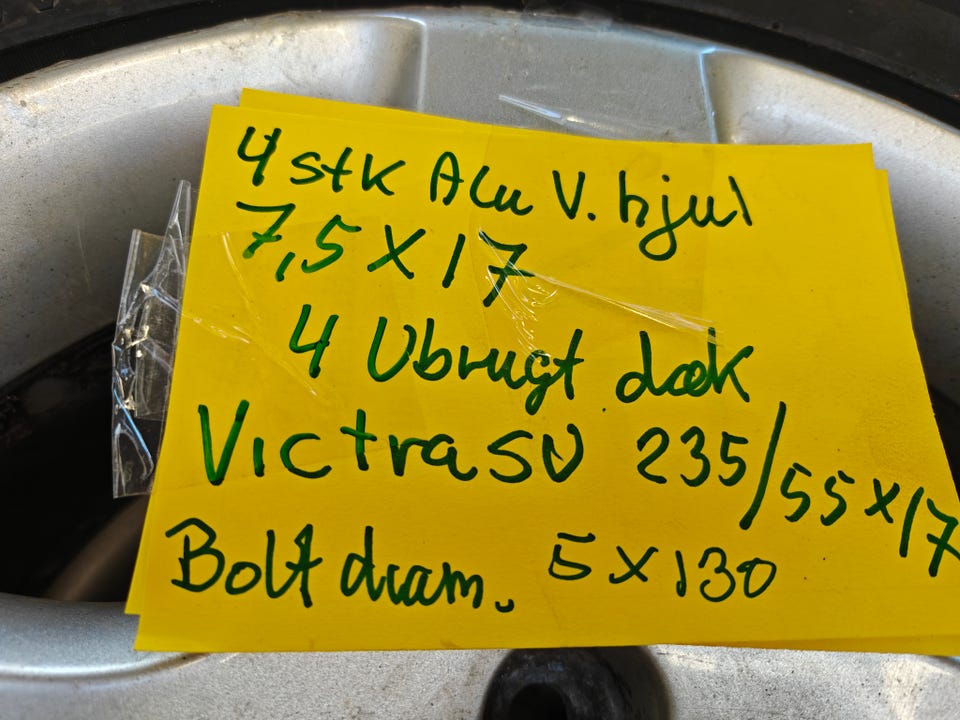 4 stk Alu V. hjul
7,5 X 17
4 Ubrugt dæk
Victra SU 235/55x17
Bolt diam. 5x130